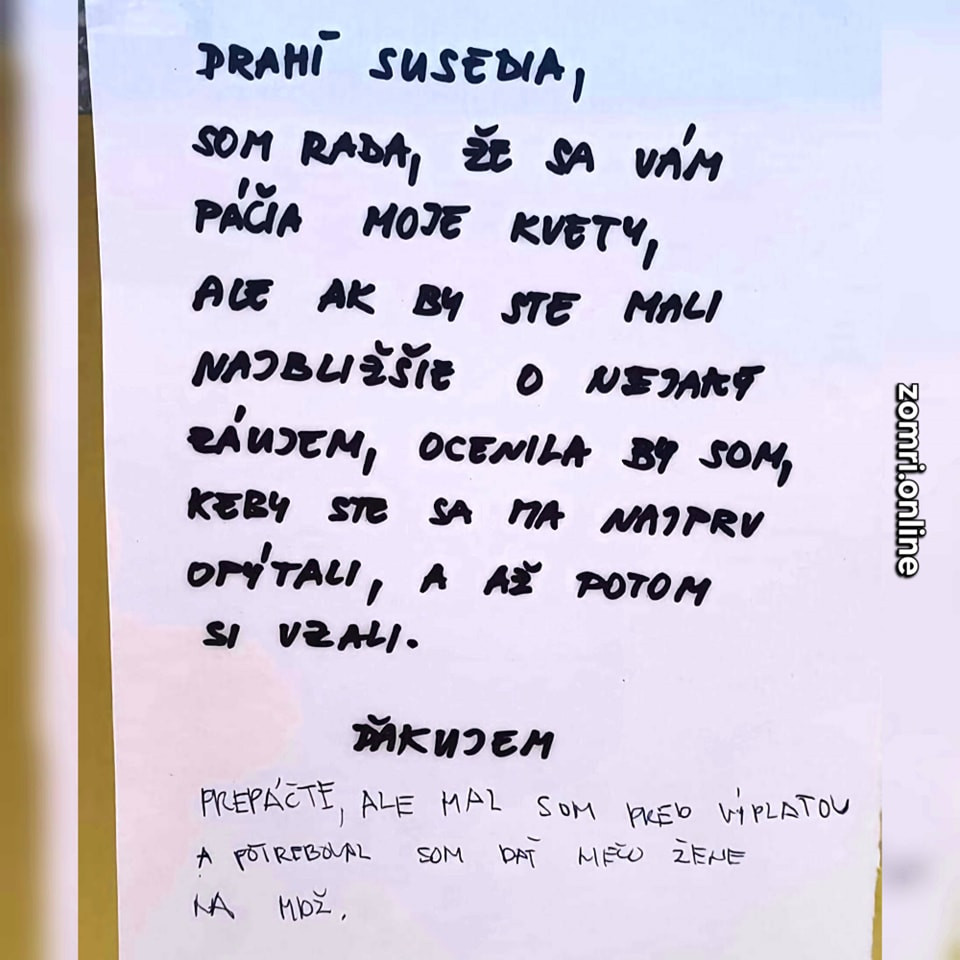 DRAHÍ SUSEDIA,
SOM RADA, ŽE SA VÁM
PÁČIA MOJE KVETY,
ALE AK BY STE MALI
NAJBLIŽŠIE O NEJAKÝ
ZÁUJEM, OCENILA BY SOM,
KEBY STE SA MA NAJPRV
OPÝTALI, A AŽ POTOM
SI VZALI.
ĎAKUJEM
PREPÁČTE, ALE MAL SOM PRED VÝPLATOU
A POTREBOVAL SOM DAŤ NEČO ŽENE
NA MDŽ.
zomri.online